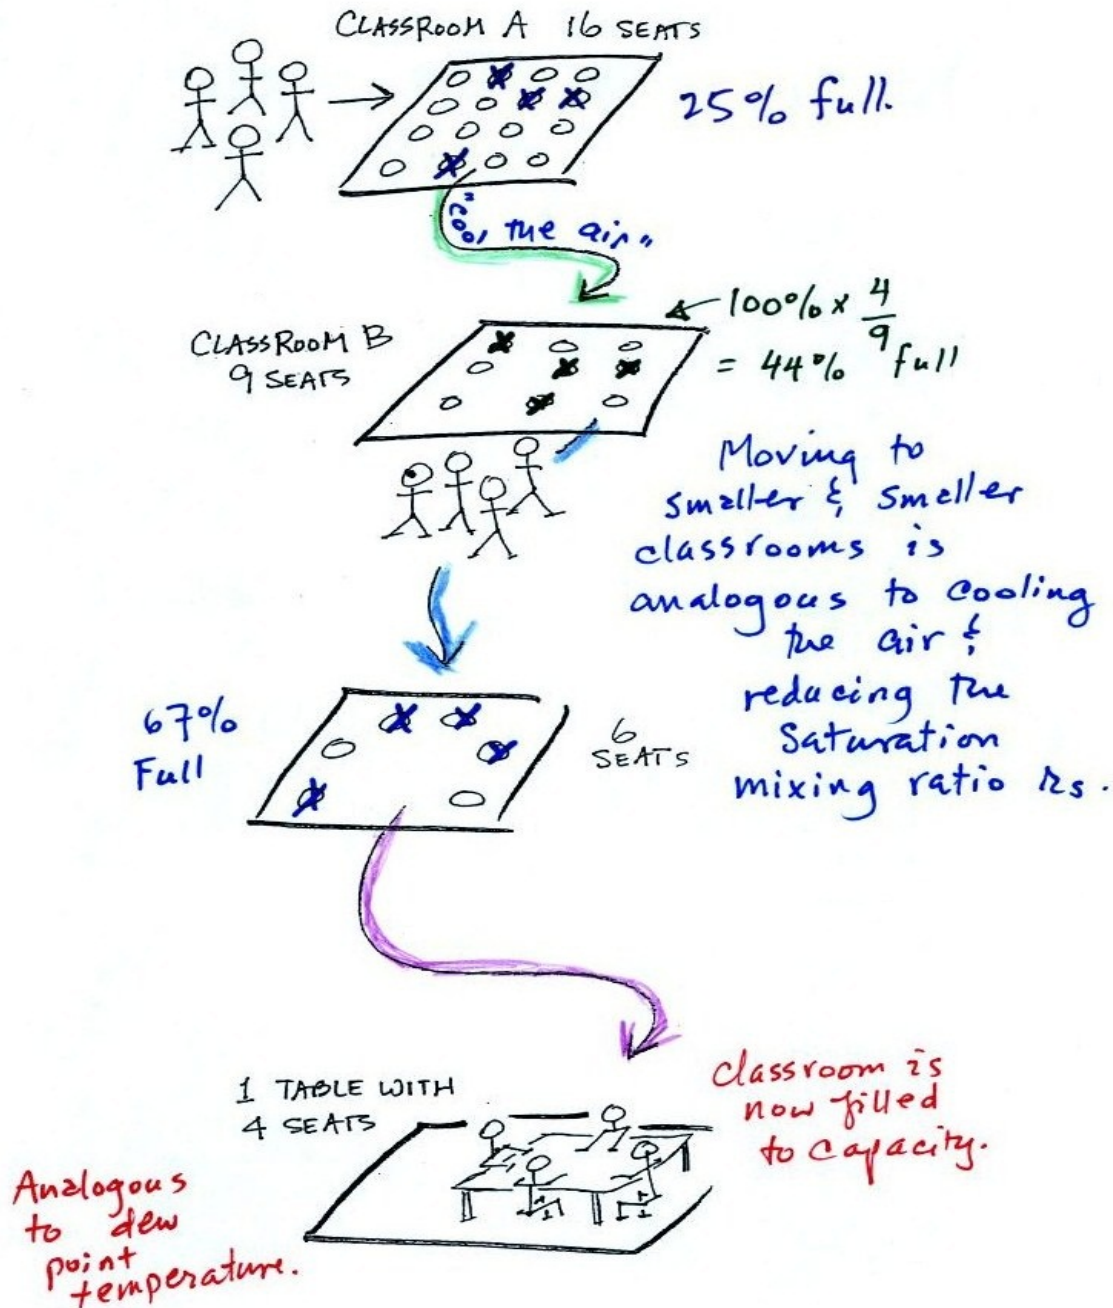 CLASSROOM A 16 SEATS
25% full.
"cool the air"
CLASSROOM B
9 SEATS
100% x 4/9
= 44% full
Moving to
smaller & smaller
classrooms is
analogous to cooling
the air &
reducing the
saturation
mixing ratio rs.
67%
Full
6
SEATS
1 TABLE WITH
4 SEATS
classroom is
now filled
to capacity.
Analogous
to dew
point
temperature.